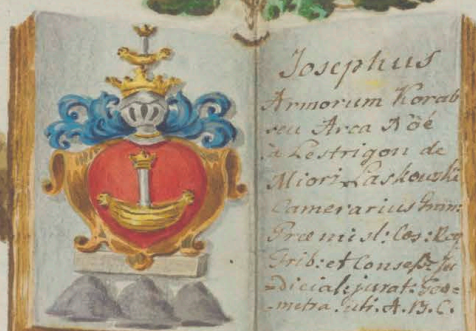 Josephus
Armorum Korab
seu Arca Nöé
à Lestrigon de
Miori Laskowski
Camerarius Gran:
Præmisl: Cæs: Reg
Trib: et Consess: Ju
dicial: jurat: Geo-
metra. Juti: A. B. C.